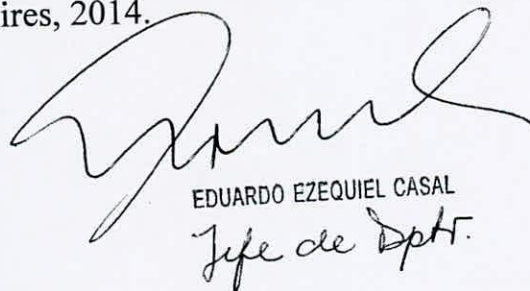 ires, 2014.
EDUARDO EZEQUIEL CASAL
Jefe de Dptr.